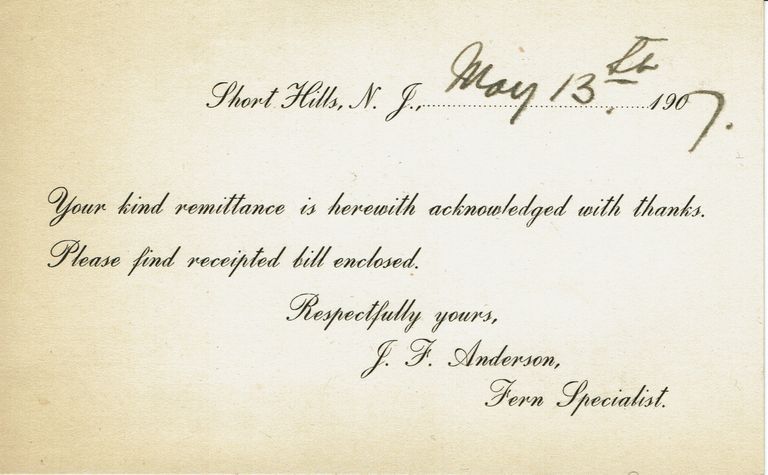 Short Hills, N. J., May 13th. 1907.
Your kind remittance is herewith acknowledged with thanks.
Please find receipted bill enclosed.
Respectfully yours,
J. F. Anderson,
Fern Specialist.